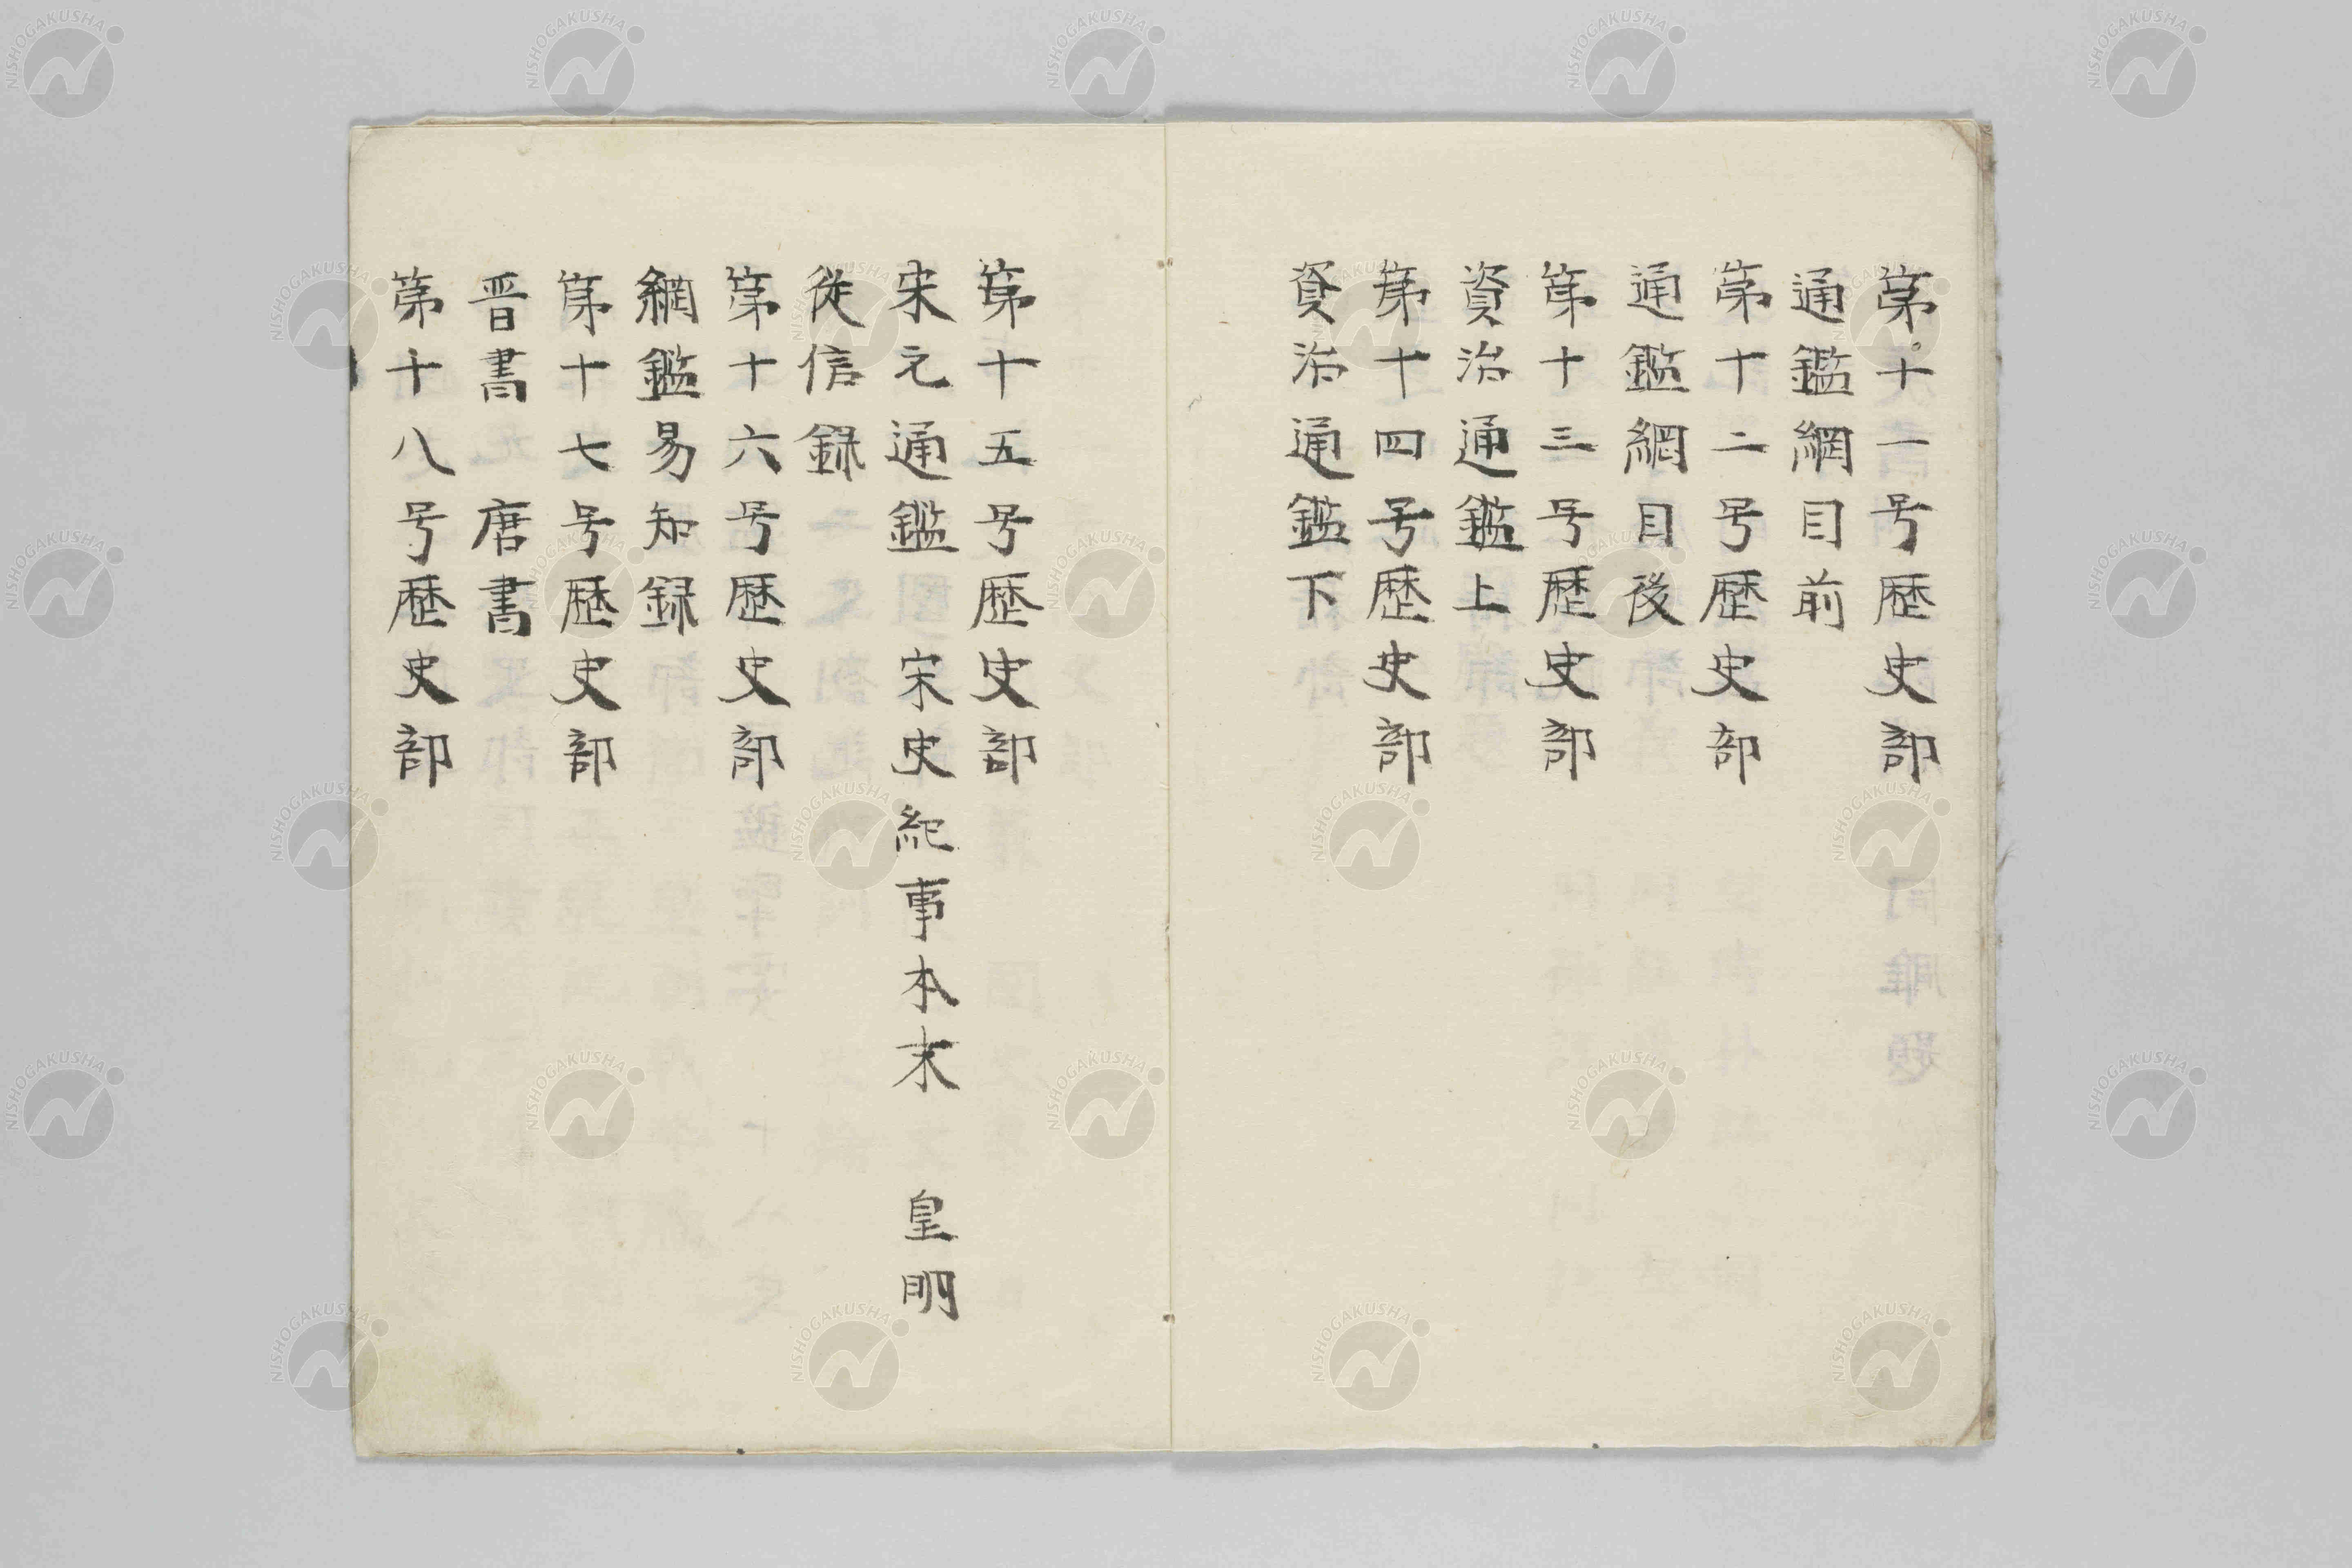 第十一号歴史部
通鑑網目前
第十二号歴史部
通鑑網目後
第十三号歴史部
資治通鑑上
第十四号歴史部
資治通鑑下
第十五号歴史部
宋元通鑑 宋史紀事本末 皇明
従信録
第十六号歴史部
網鑑易知録
第十七号歴史部
晋書 唐書
第十八号歴史部
NISHOGAKUSHA